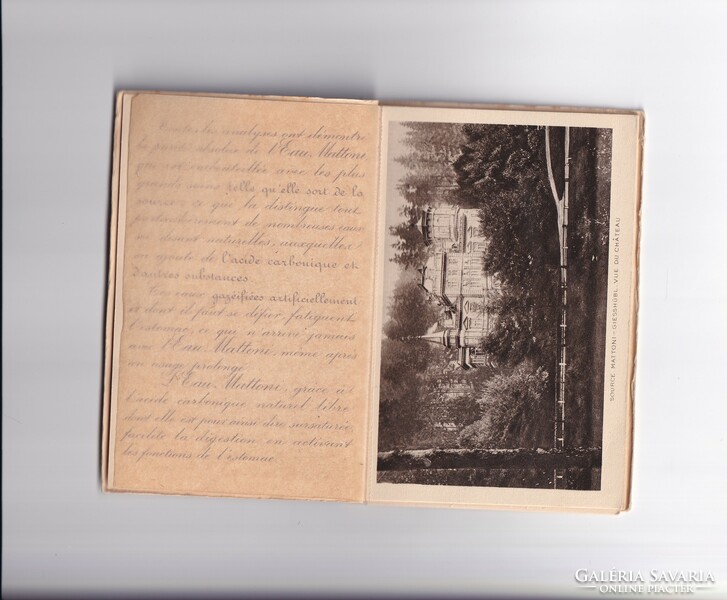 Toutes les analyses ont démontré
la pureté absolue de l'Eau Mattoni
qui est embouteillée avec les plus
grands soins telle qu'elle sort de la
source; ce qui la distingue tout
particulièrement de nombreuses eaux
se disant naturelles, auxquelles
on ajoute de l'acide carbonique et
d'autres substances.
Ces eaux gazéifiées artificiellement
et dont il faut se défier, fatiguent
l'estomac, ce qui n'arrive jamais
avec l'Eau Mattoni, même après
un usage prolongé.
L'Eau Mattoni, grâce à
l'acide carbonique naturel libre
dont elle est pour ainsi dire sursaturée,
facilite la digestion en activant
les fonctions de l'estomac.
SOURCE MATTONI - GIESSHÜBL VUE DU CHÂTEAU
GALÉRIA SAVARIA
ONLINE PIACTÉR